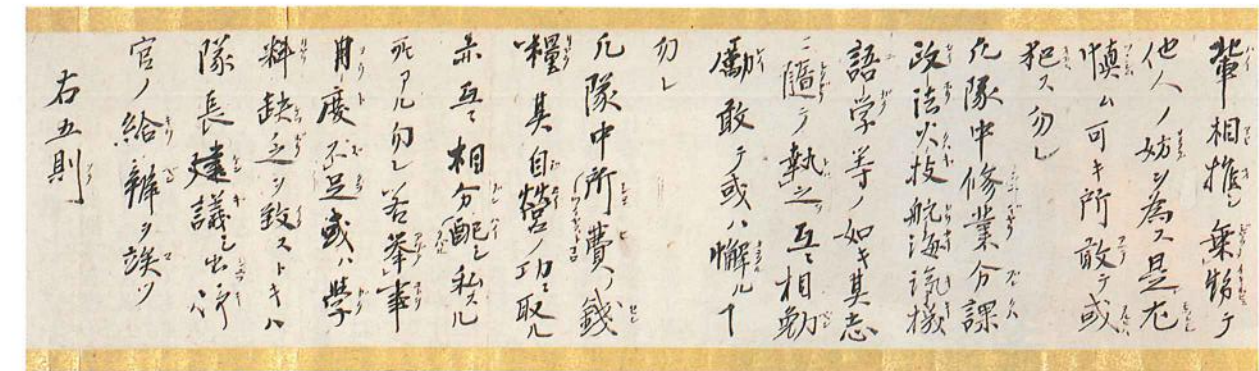 輩相推シ乗勢テ
他人ノ妨ヲ為ス是尤
慎ム可キ所敢テ或
犯ス勿レ
凡隊中修業分課
政法火技航海汽機
語学等ノ如キ其志
ニ随テ執之互ニ相勉
励敢テ或ハ懈ルヿ
勿レ
凡隊中所費ノ銭
糧其自営ノ功ニ取ル
亦互ニ相分配シ私スル
所アル勿レ若挙事
用度不足或ハ学
料欠乏ヲ致ストキハ
隊長建議シ出
官ノ給弁ヲ竢ツ
右五則